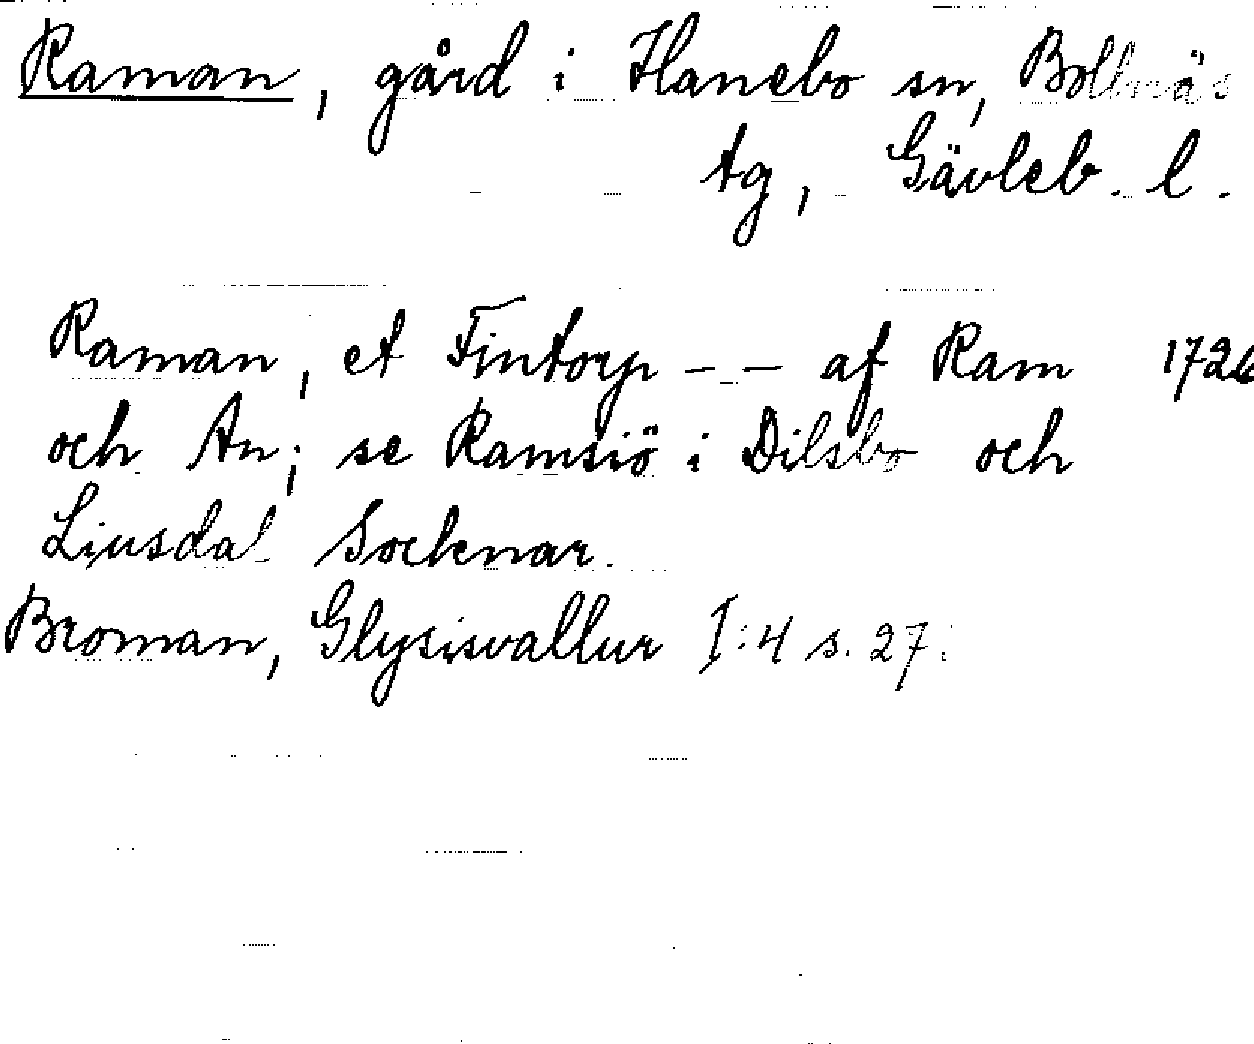 Raman, gård i Hanebo sn, Bollnäs
tg, Gävleb. l.
Raman, et Fintorp - - - af Ram 1726
och An; se Ramsiö i Dilsbo och
Liusdal Socknar.
Broman, Glysisvallur I:4 s. 27.